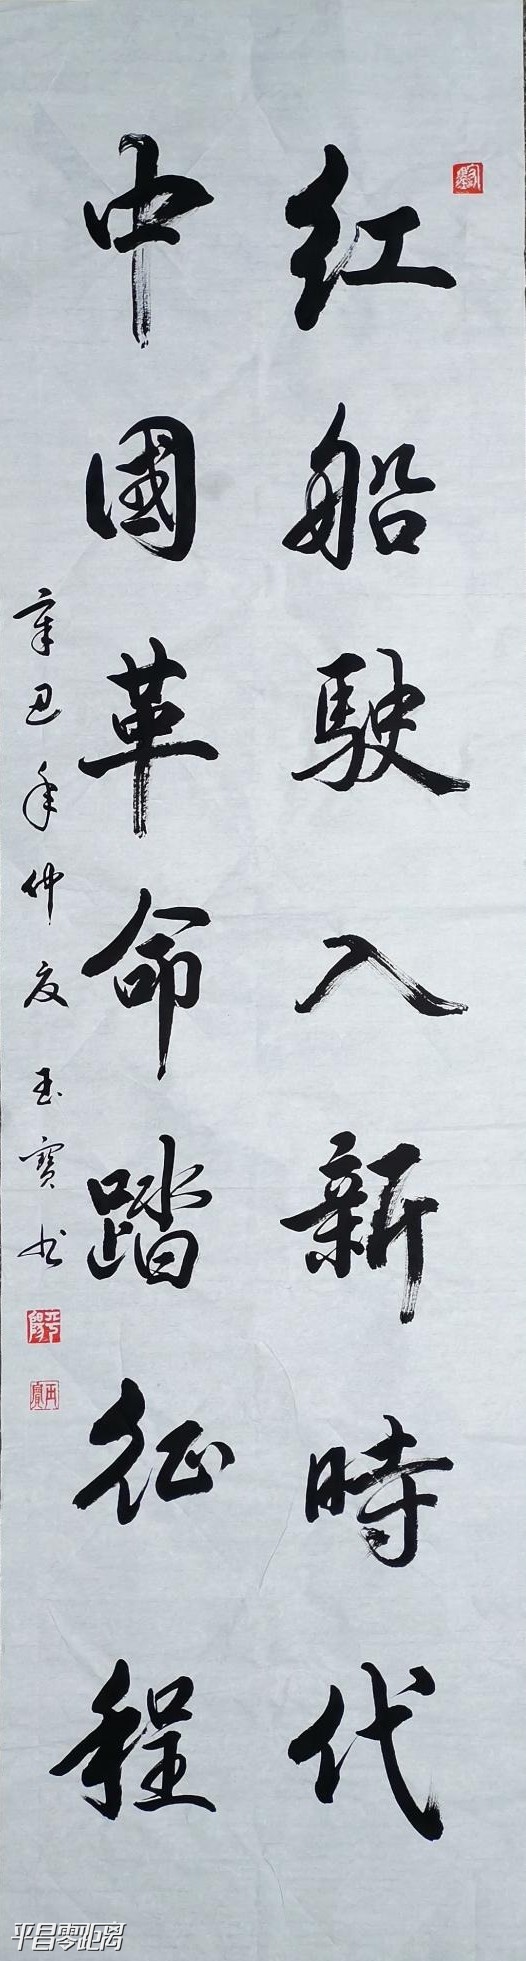 红船駛入新時代
中國革命踏征程
辛丑年仲夏玉寶书
平昌零距离